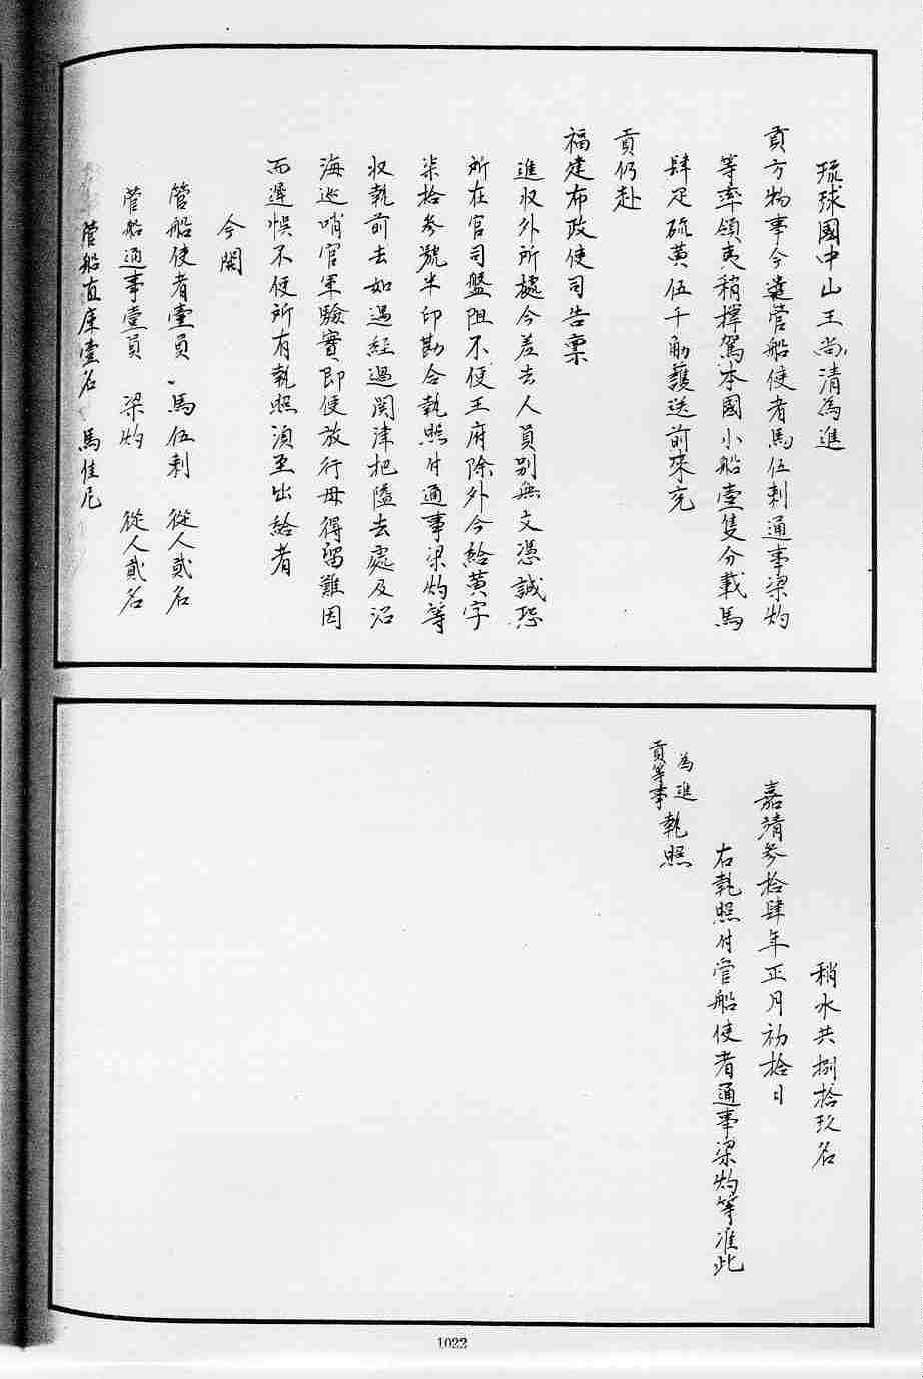 琉球國中山王尚清為進
貢方物事今遣管船使者馬伍剌通事梁灼
等率領夷稍撑駕本國小船壹隻分載馬
肆疋硫黄伍千觔護送前來充
貢仍赴
福建布政使司告稟
進收外所據今差去人員別無文憑誠恐
所在官司盤阻不便王府除外今給黄字
柒拾叄號半印勘合執照付通事梁灼等
收執前去如遇經過関津把隘去處及沿
海巡哨官軍驗實即便放行毋得留難因
而遲悮不便所有執照湏至出給者
今開
管船使者壹員 馬伍剌 從人貳名
管船通事壹員 梁灼 從人貳名
管船直庫壹名 馬佳尼
稍水共捌拾玖名
嘉靖參拾肆年正月初拾日
右執照付管船使者通事梁灼等准此
為進
貢等事執照
1022